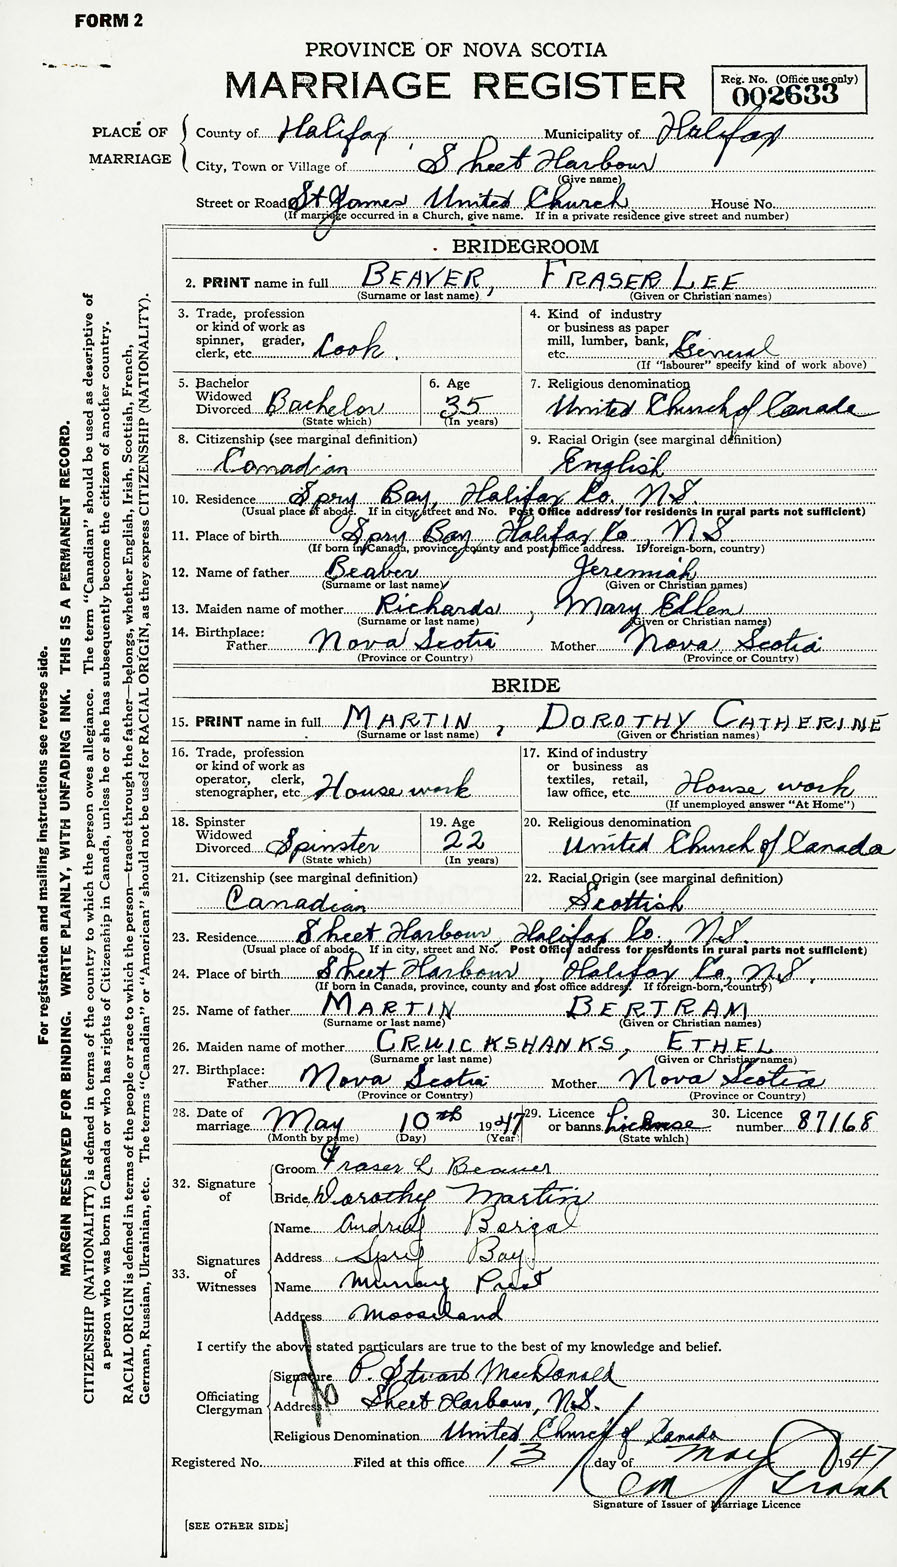 FORM 2
PROVINCE OF NOVA SCOTIA
MARRIAGE REGISTER
Reg. No. (Office use only)
002633
PLACE OF MARRIAGE
County of Halifax, Municipality of Halifax
City, Town or Village of Sheet Harbour
(Give name)
Street or Road St James United Church House No.
(If marriage occurred in a Church, give name. If in a private residence give street and number)
BRIDEGROOM
2. PRINT name in full BEAVER, FRASER LEE
(Surname or last name) (Given or Christian names)
3. Trade, profession
or kind of work as
spinner, grader,
clerk, etc. Cook.
4. Kind of industry
or business as paper
mill, lumber, bank,
etc. General
(If "labourer" specify kind of work above)
5. Bachelor
Widowed
Divorced Bachelor
(State which)
6. Age
35
(In years)
7. Religious denomination
United Church of Canada
8. Citizenship (see marginal definition)
Canadian
9. Racial Origin (see marginal definition)
English
10. Residence Spry Bay, Halifax Co. N.S.
(Usual place of abode. If in city, street and No. Post Office address for residents in rural parts not sufficient)
11. Place of birth Spry Bay, Halifax Co., N.S.
(If born in Canada, province, county and post office address. If foreign-born, country)
12. Name of father Beaver Jeremiah
(Surname or last name) (Given or Christian names)
13. Maiden name of mother Richards, Mary Ellen
(Surname or last name) (Given or Christian names)
14. Birthplace:
Father Nova Scotia Mother Nova Scotia
(Province or Country) (Province or Country)
BRIDE
15. PRINT name in full MARTIN, DOROTHY CATHERINE
(Surname or last name) (Given or Christian names)
16. Trade, profession
or kind of work as
operator, clerk,
stenographer, etc. House work
17. Kind of industry
or business as
textiles, retail,
law office, etc. House work
(If unemployed answer "At Home")
18. Spinster
Widowed
Divorced Spinster
(State which)
19. Age
22
(In years)
20. Religious denomination
United Church of Canada
21. Citizenship (see marginal definition)
Canadian
22. Racial Origin (see marginal definition)
Scottish
23. Residence Sheet Harbour, Halifax Co., N.S.
(Usual place of abode. If in city, street and No. Post Office address for residents in rural parts not sufficient)
24. Place of birth Sheet Harbour, Halifax Co, N.S.
(If born in Canada, province, county and post office address. If foreign-born, country)
25. Name of father MARTIN BERTRAM
(Surname or last name) (Given or Christian names)
26. Maiden name of mother CRUICKSHANKS, ETHEL
(Surname or last name) (Given or Christian names)
27. Birthplace:
Father Nova Scotia Mother Nova Scotia
(Province or Country) (Province or Country)
28. Date of
marriage May 10th 1947
(Month by name) (Day) (Year)
29. Licence
or banns. License
(State which)
30. Licence
number 87168
32. Signature of
Groom Fraser L Beaver
Bride Dorothy Martin
33. Signatures of Witnesses
Name
Address Spry Bay.
Name Murray Prest
Address Mooseland
I certify the above stated particulars are true to the best of my knowledge and belief.
Officiating Clergyman
Signature P. Stuart MacDonald
Address Sheet Harbour, N.S.
Religious Denomination United Church of Canada
Registered No. Filed at this office 13 day of May 1947
Signature of Issuer of Marriage Licence
[SEE OTHER SIDE]
For registration and mailing instructions see reverse side.
MARGIN RESERVED FOR BINDING. WRITE PLAINLY, WITH UNFADING INK. THIS IS A PERMANENT RECORD.
CITIZENSHIP (NATIONALITY) is defined in terms of the country to which the person owes allegiance. The term "Canadian" should be used as descriptive of
a person who was born in Canada or who has rights of Citizenship in Canada, unless he or she has subsequently become the citizen of another country.
RACIAL ORIGIN is defined in terms of the people or race to which the person—traced through the father—belongs, whether English, Irish, Scottish, French,
German, Russian, Ukrainian, etc. The terms "Canadian" or "American" should not be used for RACIAL ORIGIN, as they express CITIZENSHIP (NATIONALITY).